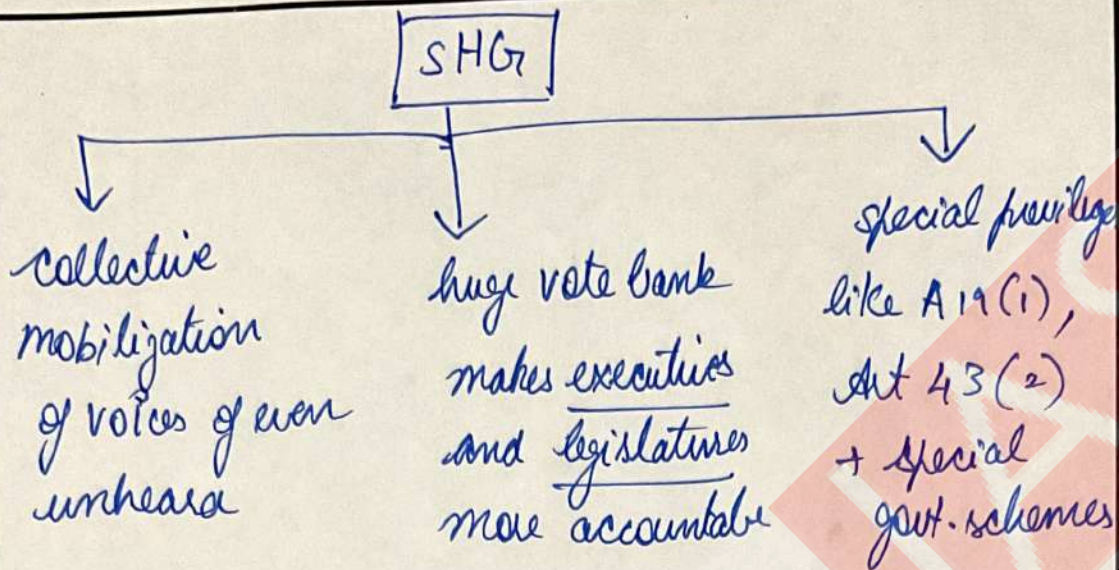 SHG
collective
mobilization
of voices of even
unheard
huge vote bank
makes executives
and legislatures
more accountable
special privilege
like A 19(1),
Art 43(2)
+ special
govt. schemes